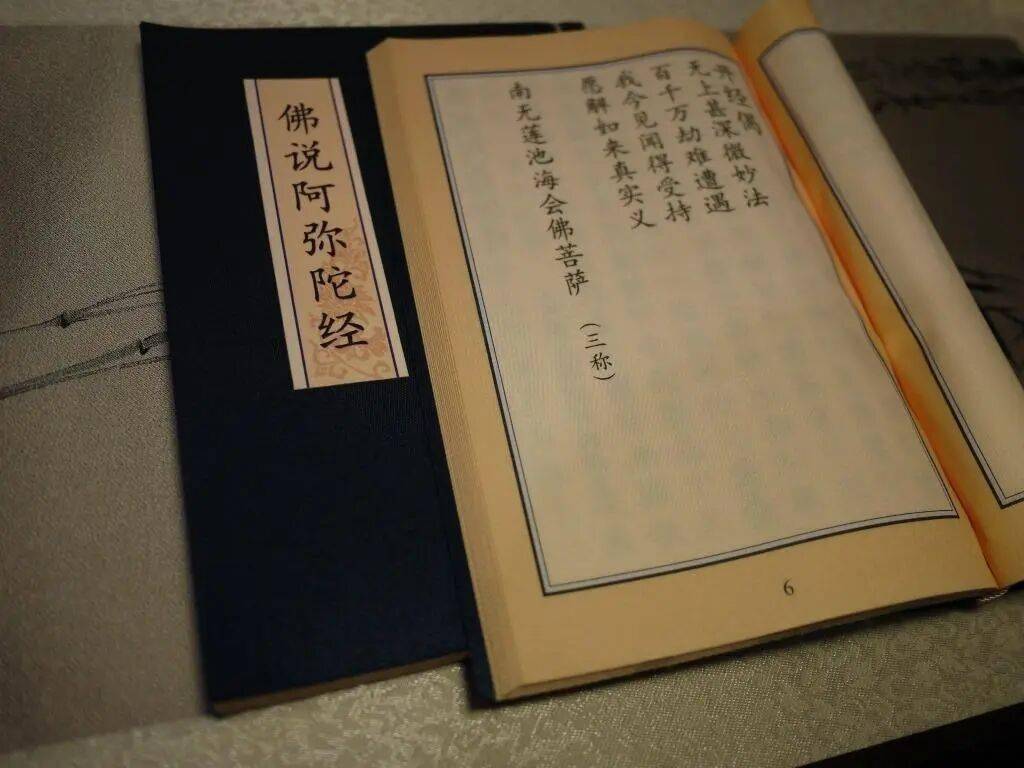 佛说阿弥陀经
开经偈
无上甚深微妙法
百千万劫难遭遇
我今见闻得受持
愿解如来真实义
南无莲池海会佛菩萨（三称）
6